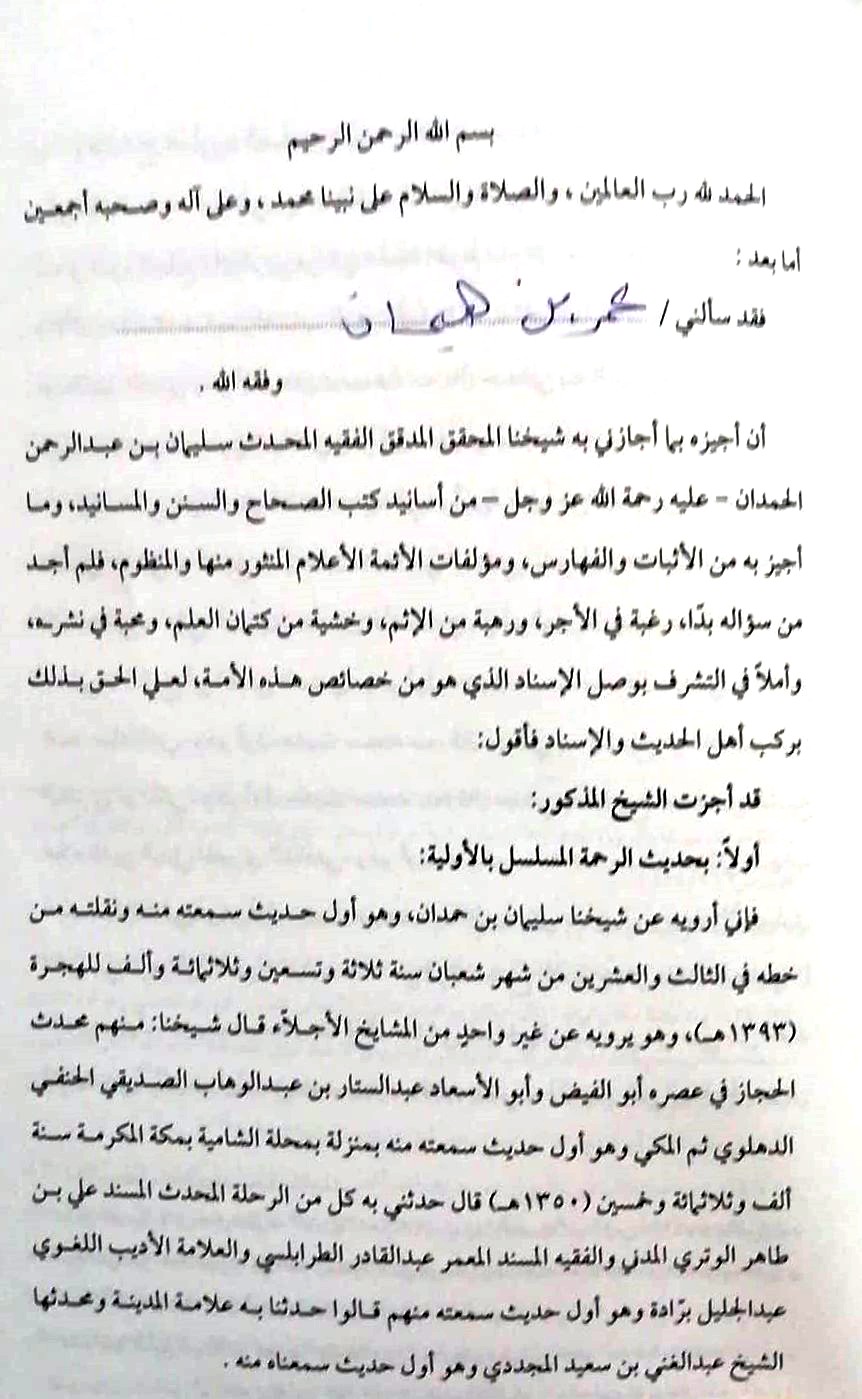 بسم الله الرحمن الرحيم
الحمد لله رب العالمين ، والصلاة والسلام على نبينا محمد ، وعلى آله وصحبه أجمعين
أما بعد :
فقد سألني / عمر بن
وفقه الله .
أن أجيزه بما أجازني به شيخنا المحقق المدقق الفقيه المحدث سليمان بن عبدالرحمن
الحمدان – عليه رحمة الله عز وجل – من أسانيد كتب الصحاح والسنن والمسانيد، وما
أجيز به من الأثبات والفهارس، ومؤلفات الأئمة الأعلام المنثور منها والمنظوم، فلم أجد
من سؤاله بدًا، رغبة في الأجر، ورهبة من الإثم، وخشية من كتمان العلم، ومحبة في نشره،
وأملاً في التشرف بوصل الإسناد الذي هو من خصائص هذه الأمة، لعلي الحق بذلك
بركب أهل الحديث والإسناد فأقول:
قد أجزت الشيخ المذكور:
أولاً: بحديث الرحمة المسلسل بالأولية:
فإني أرويه عن شيخنا سليمان بن حمدان، وهو أول حديث سمعته منه ونقلته من
خطه في الثالث والعشرين من شهر شعبان سنة ثلاثة وتسعين وثلاثمائة وألف للهجرة
(١٣٩٣هـ)، وهو يرويه عن غير واحدٍ من المشايخ الأجلاّء قال شيخنا: منهم محدث
الحجاز في عصره أبو الفيض وأبو الأسعاد عبدالستار بن عبدالوهاب الصديقي الحنفي
الدهلوي ثم المكي وهو أول حديث سمعته منه بمنزلة بمحلة الشامية بمكة المكرمة سنة
ألف وثلاثمائة وخمسين (١٣٥٠هـ) قال حدثني به كل من الرحلة المحدث المسند علي بن
طاهر الوتري المدني والفقيه المسند المعمر عبدالقادر الطرابلسي والعلامة الأديب اللغوي
عبدالجليل برّادة وهو أول حديث سمعته منهم قالوا حدثنا به علامة المدينة ومحدثها
الشيخ عبدالغني بن سعيد المجددي وهو أول حديث سمعناه منه .